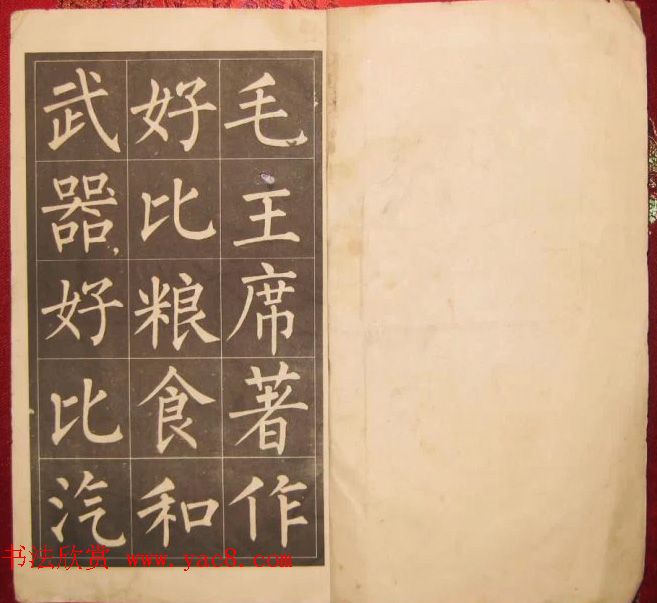 毛主席著作
好比粮食和
武器，好比汽
书法欣赏 www.yac8.com